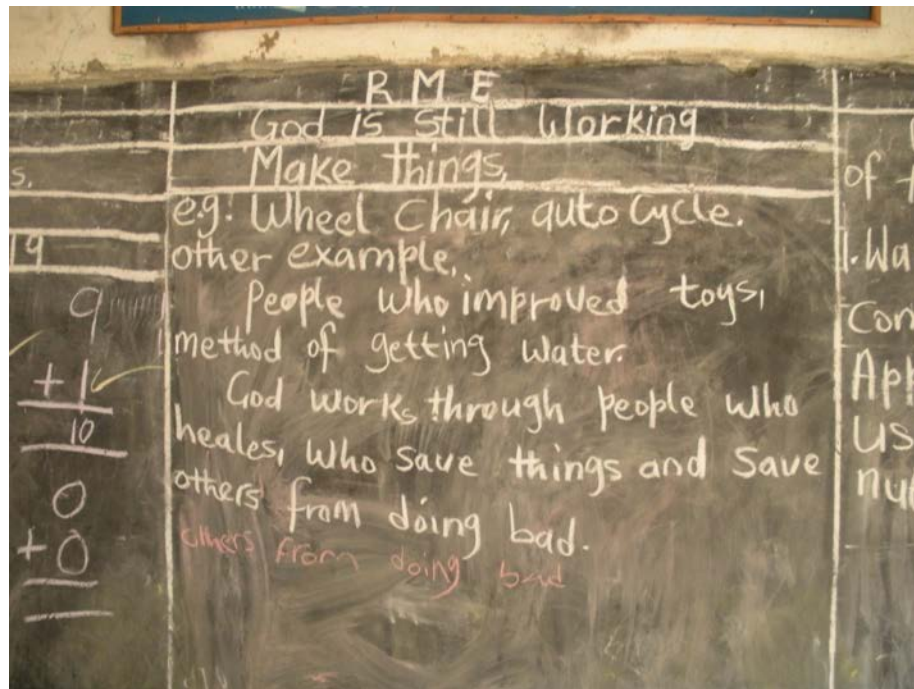 s.
19
9
+ 1
10
0
+ 0
R M E
God is Still Working
Make things,
e.g. Wheel Chair, auto Cycle.
other example,
People who improved toys,
method of getting water.
God works through people who
heales, who save things and save
others from doing bad.
others from doing bad
of
1. Wa
Con
App
Us
nu